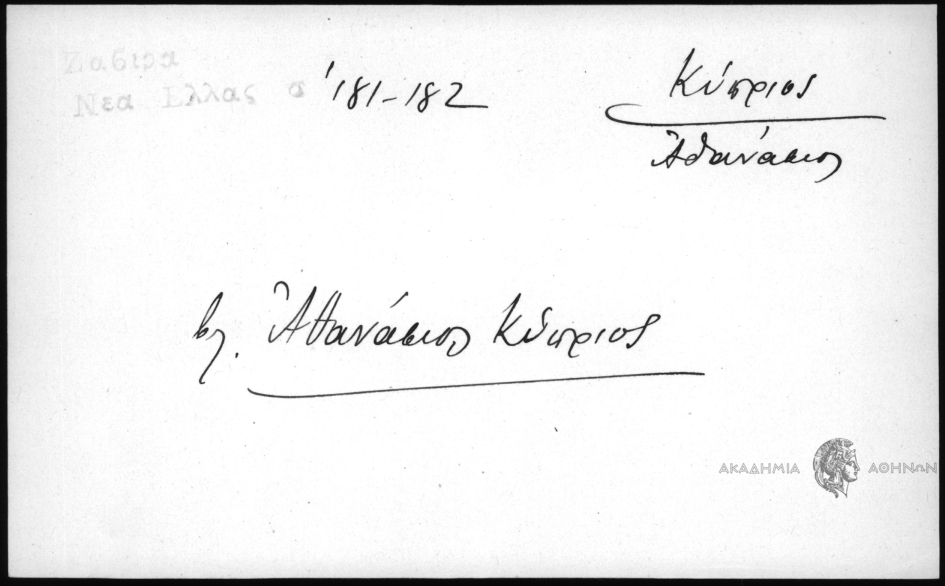 Ζαβιρα
Νεα Ελλας σ 181-182
Κύπριος
Ἀθανάσιος
βλ. Ἀθανάσιος Κύπριος
ΑΚΑΔΗΜΙΑ ΑΘΗΝΩΝ